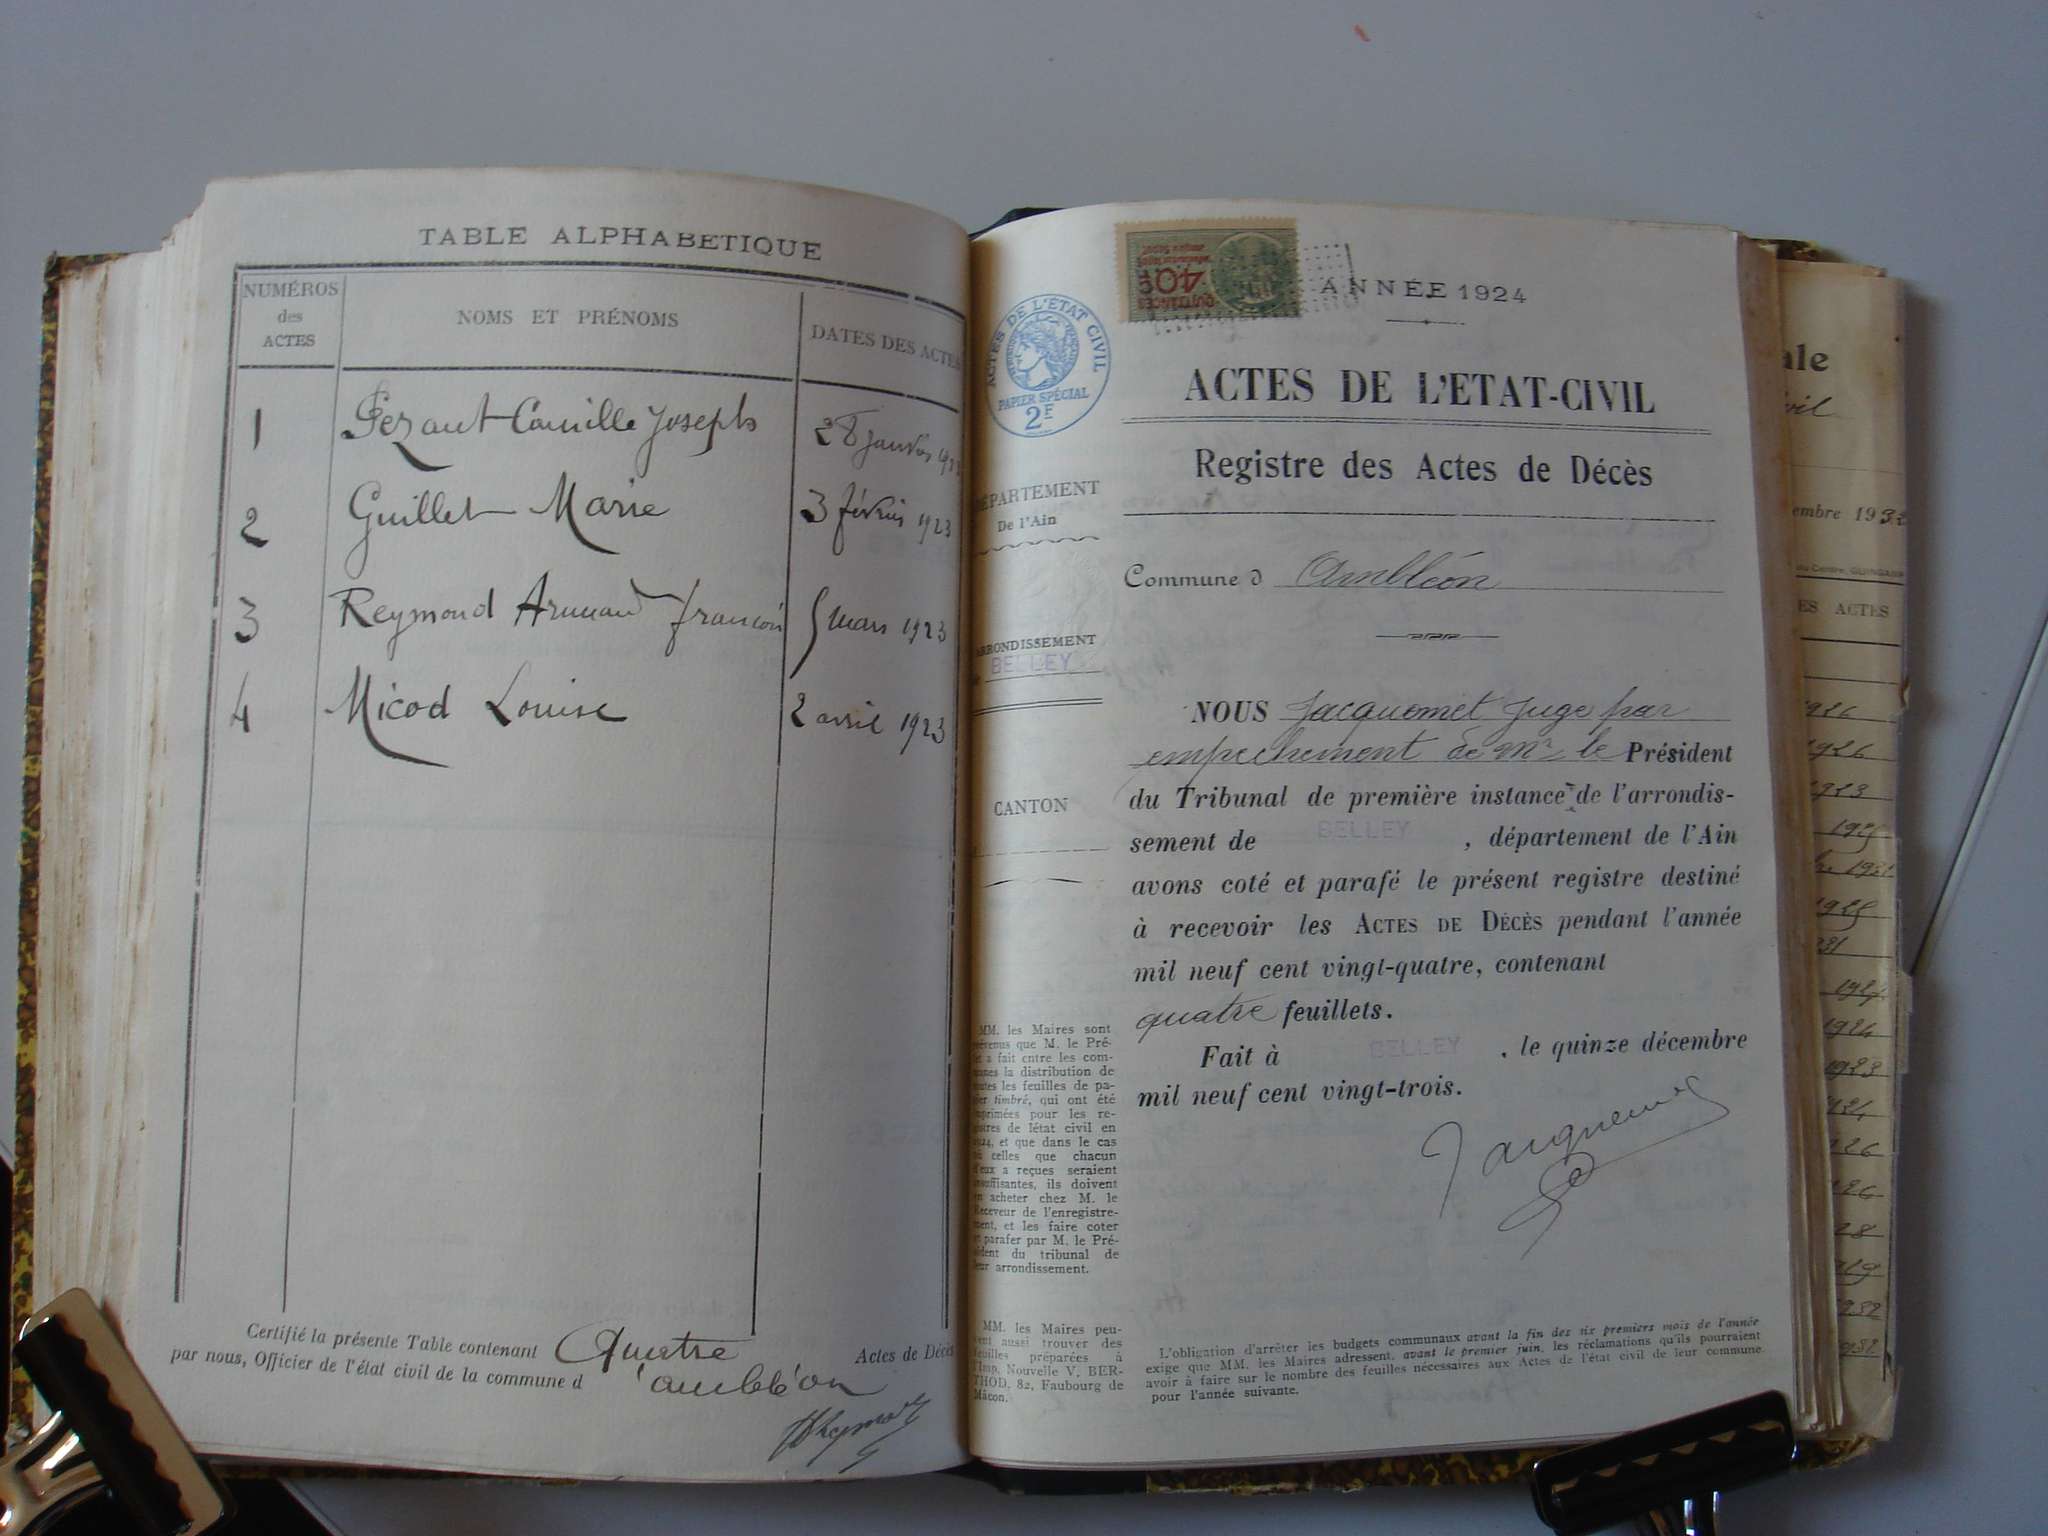 TABLE ALPHABETIQUE
NUMÉROS
des
ACTES
NOMS ET PRÉNOMS
DATES DES ACTES
1 Camille Joseph 28 janvier
2 Guillet Marie 3 février 1923
3 Reymond Armand françois 5 mars 1923
4 Micod Louise 2 avril 1923
Certifié la présente Table contenant Quatre Actes de Décès
par nous, Officier de l'état civil de la commune d 'ambléon
QUITTANCES
40c
ACTES DE L'ETAT CIVIL
PAPIER SPÉCIAL
2F
ANNÉE 1924
ACTES DE L'ETAT-CIVIL
Registre des Actes de Décès
DÉPARTEMENT
De l'Ain
Commune d Ambléon
ARRONDISSEMENT
BELLEY
CANTON
NOUS Jacquemet Juge par
empechement de Mr le Président
du Tribunal de première instance de l'arrondis-
sement de BELLEY, département de l'Ain
avons coté et parafé le présent registre destiné
à recevoir les ACTES DE DÉCÈS pendant l'année
mil neuf cent vingt-quatre, contenant
quatre feuillets.
Fait à BELLEY, le quinze décembre
mil neuf cent vingt-trois.
Jacquemet
MM. les Maires sont
prévenus que M. le Pré-
fet a fait entre les com-
munes la distribution de
toutes les feuilles de pa-
pier timbré, qui ont été
imprimées pour les re-
gistres de létat civil en
1924, et que dans le cas
où celles que chacun
d'eux a reçues seraient
insuffisantes, ils doivent
en acheter chez M. le
Receveur de l'enregistre-
ment, et les faire coter
et parafer par M. le Pré-
sident du tribunal de
leur arrondissement.
MM. les Maires peu-
vent aussi trouver des
feuilles préparées à
l'Imp. Nouvelle V. BER-
THOD, 82, Faubourg de
Mâcon.
L'obligation d'arrêter les budgets communaux avant la fin des six premiers mois de l'année
exige que MM. les Maires adressent, avant le premier juin, les réclamations qu'ils pourraient
avoir à faire sur le nombre des feuilles nécessaires aux Actes de l'état civil de leur commune
pour l'année suivante.
ale
embre 1932
ES ACTES
1926
1926
1923